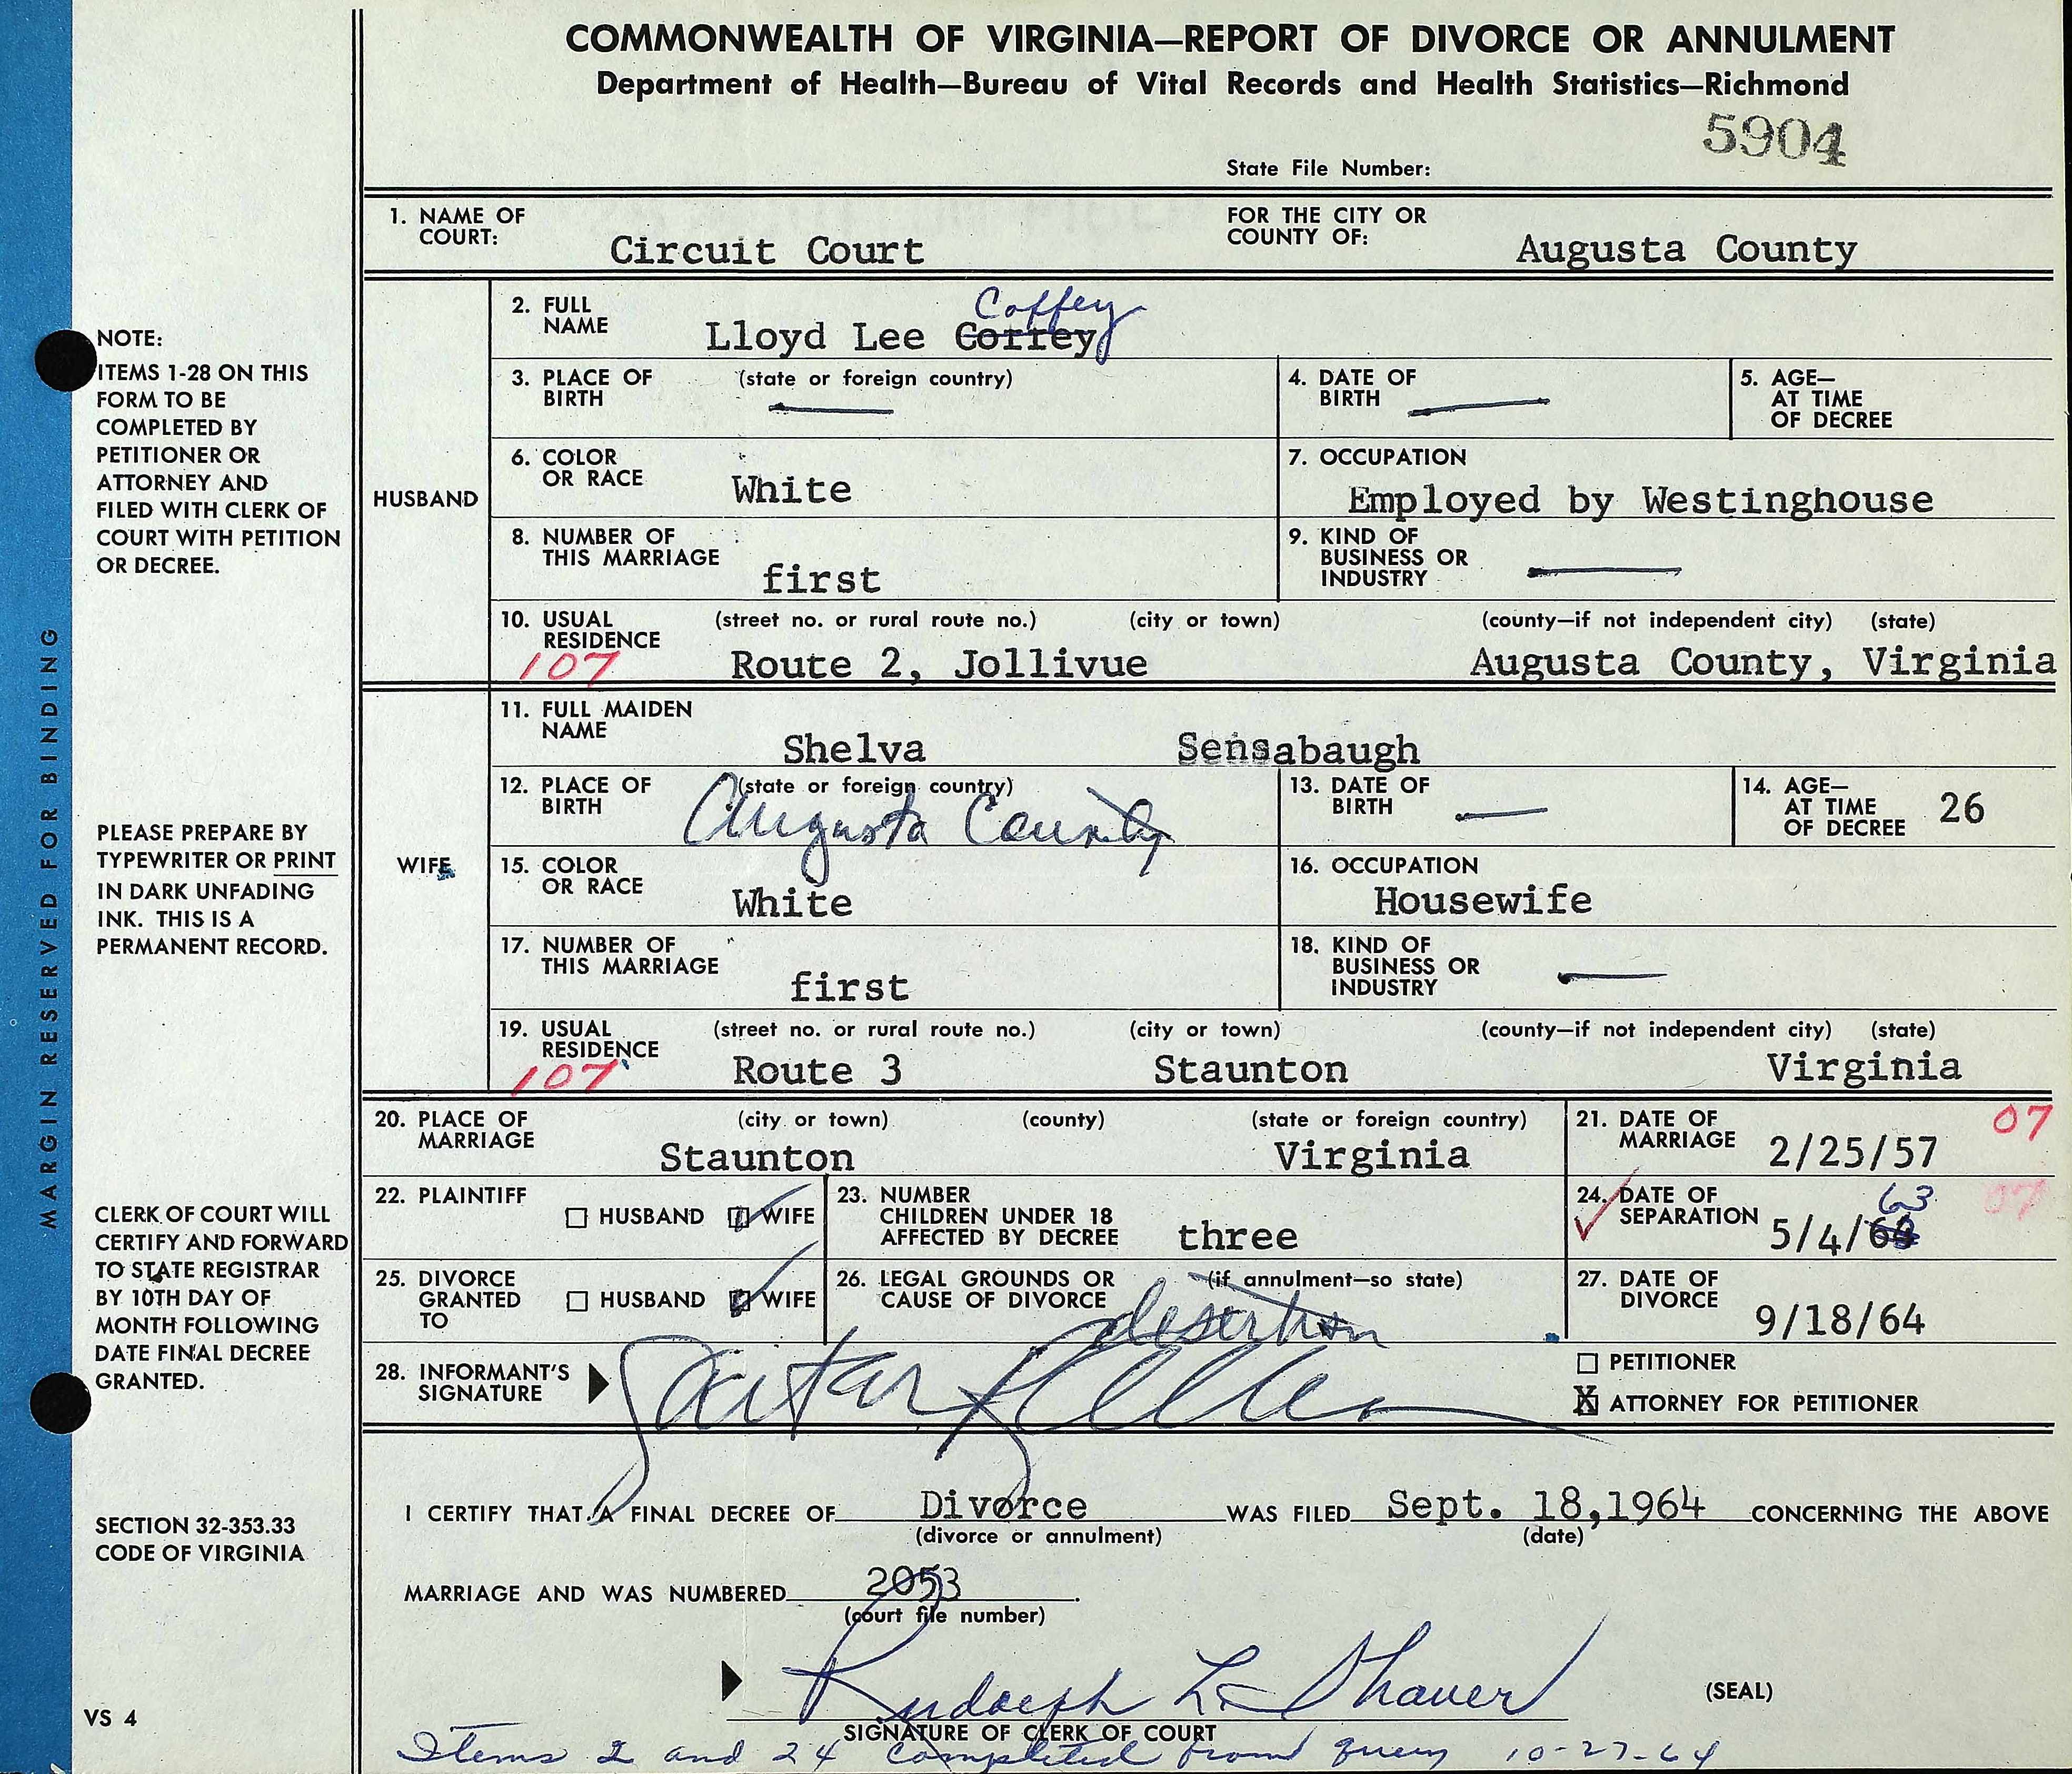 COMMONWEALTH OF VIRGINIA—REPORT OF DIVORCE OR ANNULMENT
Department of Health—Bureau of Vital Records and Health Statistics—Richmond
5904
State File Number:
1. NAME OF COURT: Circuit Court FOR THE CITY OR COUNTY OF: Augusta County
HUSBAND
Coffey
2. FULL NAME Lloyd Lee Correy
3. PLACE OF BIRTH (state or foreign country) —
4. DATE OF BIRTH —
5. AGE— AT TIME OF DECREE
6. COLOR OR RACE White
7. OCCUPATION Employed by Westinghouse
8. NUMBER OF THIS MARRIAGE first
9. KIND OF BUSINESS OR INDUSTRY —
10. USUAL RESIDENCE (street no. or rural route no.) (city or town) (county—if not independent city) (state)
107 Route 2, Jollivue Augusta County, Virginia
WIFE
11. FULL MAIDEN NAME Shelva Sensabaugh
12. PLACE OF BIRTH (state or foreign country) Augusta County
13. DATE OF BIRTH —
14. AGE— AT TIME OF DECREE 26
15. COLOR OR RACE White
16. OCCUPATION Housewife
17. NUMBER OF THIS MARRIAGE first
18. KIND OF BUSINESS OR INDUSTRY —
19. USUAL RESIDENCE (street no. or rural route no.) (city or town) (county—if not independent city) (state)
107 Route 3 Staunton Virginia
20. PLACE OF MARRIAGE (city or town) (county) (state or foreign country)
Staunton Virginia
21. DATE OF MARRIAGE 2/25/57 07
22. PLAINTIFF HUSBAND WIFE
23. NUMBER CHILDREN UNDER 18 AFFECTED BY DECREE three
24. DATE OF SEPARATION 5/4/ 63 07
25. DIVORCE GRANTED TO HUSBAND WIFE
26. LEGAL GROUNDS OR CAUSE OF DIVORCE (if annulment—so state) desertion
27. DATE OF DIVORCE 9/18/64
28. INFORMANT'S SIGNATURE
PETITIONER
X ATTORNEY FOR PETITIONER
I CERTIFY THAT A FINAL DECREE OF Divorce WAS FILED Sept. 18,1964 CONCERNING THE ABOVE
(divorce or annulment) (date)
MARRIAGE AND WAS NUMBERED 2053.
(court file number)
Rudolph L. Shaver (SEAL)
SIGNATURE OF CLERK OF COURT
Items 2 and 24 completed from query 10-27-64
MARGIN RESERVED FOR BINDING
NOTE:
ITEMS 1-28 ON THIS
FORM TO BE
COMPLETED BY
PETITIONER OR
ATTORNEY AND
FILED WITH CLERK OF
COURT WITH PETITION
OR DECREE.
PLEASE PREPARE BY
TYPEWRITER OR PRINT
IN DARK UNFADING
INK. THIS IS A
PERMANENT RECORD.
CLERK OF COURT WILL
CERTIFY AND FORWARD
TO STATE REGISTRAR
BY 10TH DAY OF
MONTH FOLLOWING
DATE FINAL DECREE
GRANTED.
SECTION 32-353.33
CODE OF VIRGINIA
VS 4